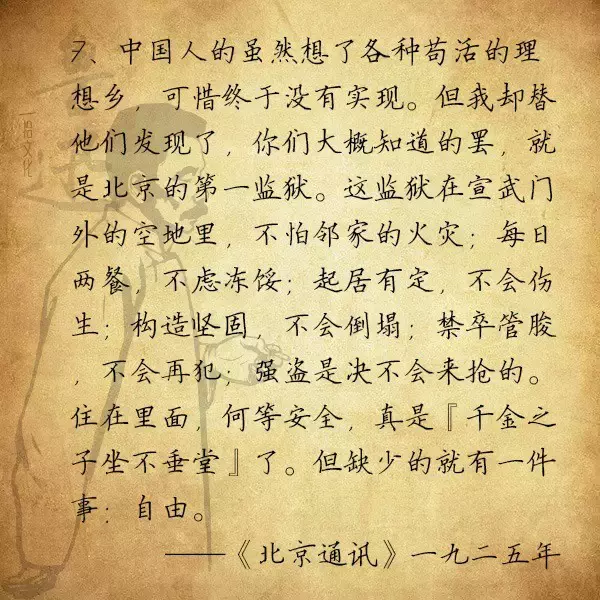 7、中国人的虽然想了各种苟活的理
想乡，可惜终于没有实现。但我却替
他们发现了，你们大概知道的罢，就
是北京的第一监狱。这监狱在宣武门
外的空地里，不怕邻家的火灾；每日
两餐，不虑冻馁；起居有定，不会伤
生；构造坚固，不会倒塌；禁卒管胺
，不会再犯；强盗是决不会来抢的。
住在里面，何等安全，真是『千金之
子坐不垂堂』了。但缺少的就有一件
事：自由。
——《北京通讯》一九二五年